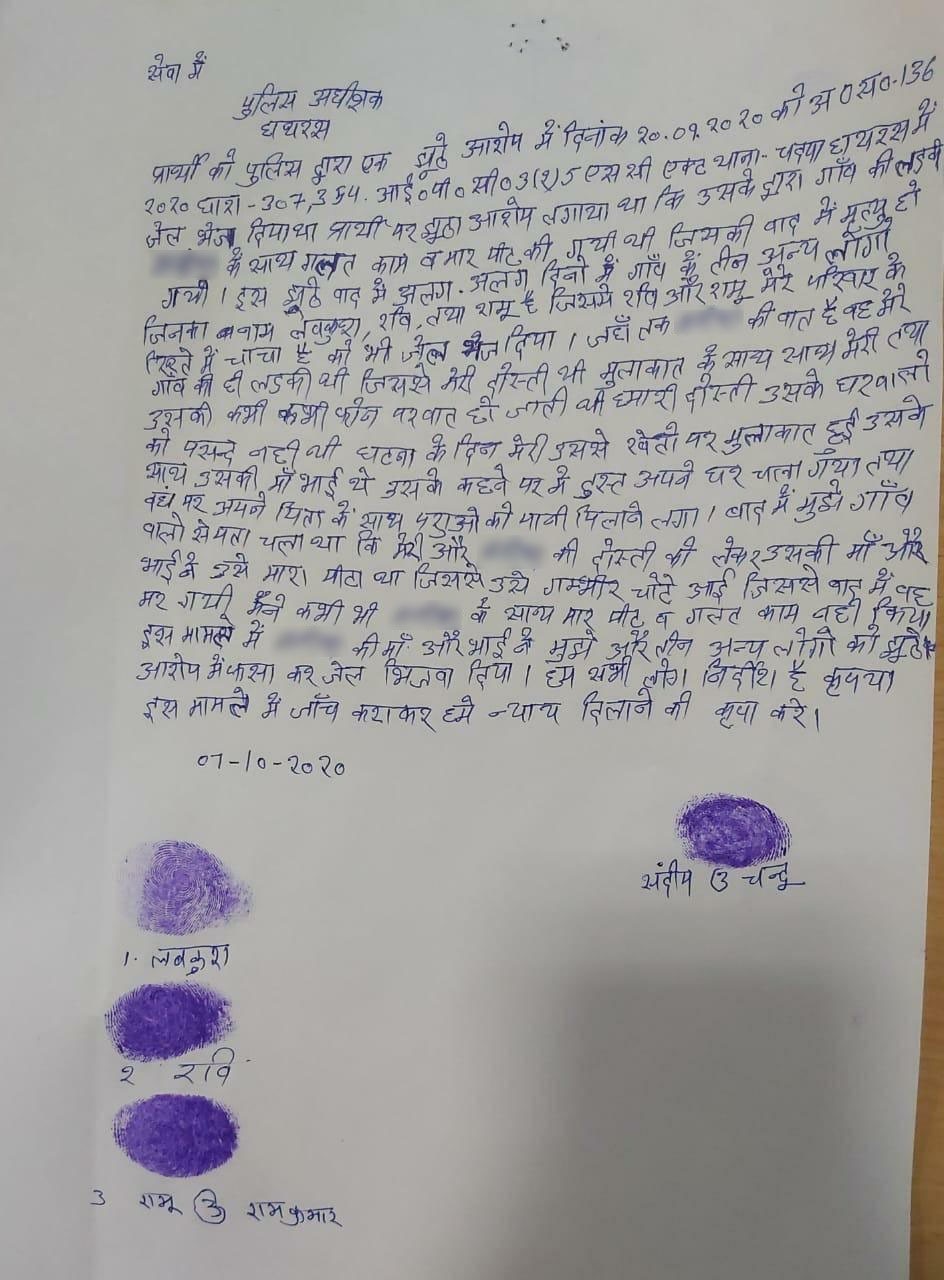 सेवा में
पुलिस अधीक्षक
हाथरस
प्रार्थी को पुलिस द्वारा एक झूठे आरोप में दिनांक २०.०९.२०२० को अ०स०-136
२०२० धारा - 307, 354. आई०पी०सी० 3(२)5 एस सी एक्ट थाना - चन्दपा हाथरस में
जेल भेज दिया था प्रार्थी पर झूठा आरोप लगाया था कि उसके द्वारा गाँव की लडकी
के साथ गलत काम व मार पीट की गयी थी जिसकी बाद में मृत्यु हो
गयी। इस झूठे वाद में अलग-अलग दिनो में गाँव के तीन अन्य लोगों
जिनका नाम लवकुश, रवि, तथा रामू है जिसमे रवि और रामू मेरे परिवार के
रिश्ते में चाचा है को भी जेल भेज दिया। जहाँ तक की बात है वह मेरे
गाँव की ही लडकी थी जिससे मेरी दोस्ती थी मुलाकात के साथ साथ मेरी तथा
उसकी कभी कभी फोन पर बात हो जाती थी हमारी दोस्ती उसके घरवालो
को पसन्द नही थी घटना के दिन मेरी उससे खेतो पर मुलाकात हुई उसके
साथ उसकी माँ भाई थे उसके कहने पर मे तुरन्त अपने घर चला गया तथा
वहां पर अपने पिता के साथ पशुओ को पानी पिलाने लगा। बाद में मुझे गाँव
वालो से पता चला था कि मेरी और की दोस्ती को लेकर उसकी माँ और
भाई ने उसे मारा पीटा था जिससे उसे गम्भीर चोटे आई जिससे बाद में वह
मर गयी मैने कभी भी के साथ मार पीट व गलत काम नही किया
इस मामले में की माँ और भाई ने मुझे और तीन अन्य लोगो को झूठे
आरोप में फसा कर जेल भिजवा दिया। हम सभी लोग निर्दोश है कृपया
इस मामले में जाँच कराकर हमे न्याय दिलाने की कृपा करे।
07-10-२०२०
संदीप उ चन्दू
1. लवकुश
२ रवि
3 रामू उ रामकुमार